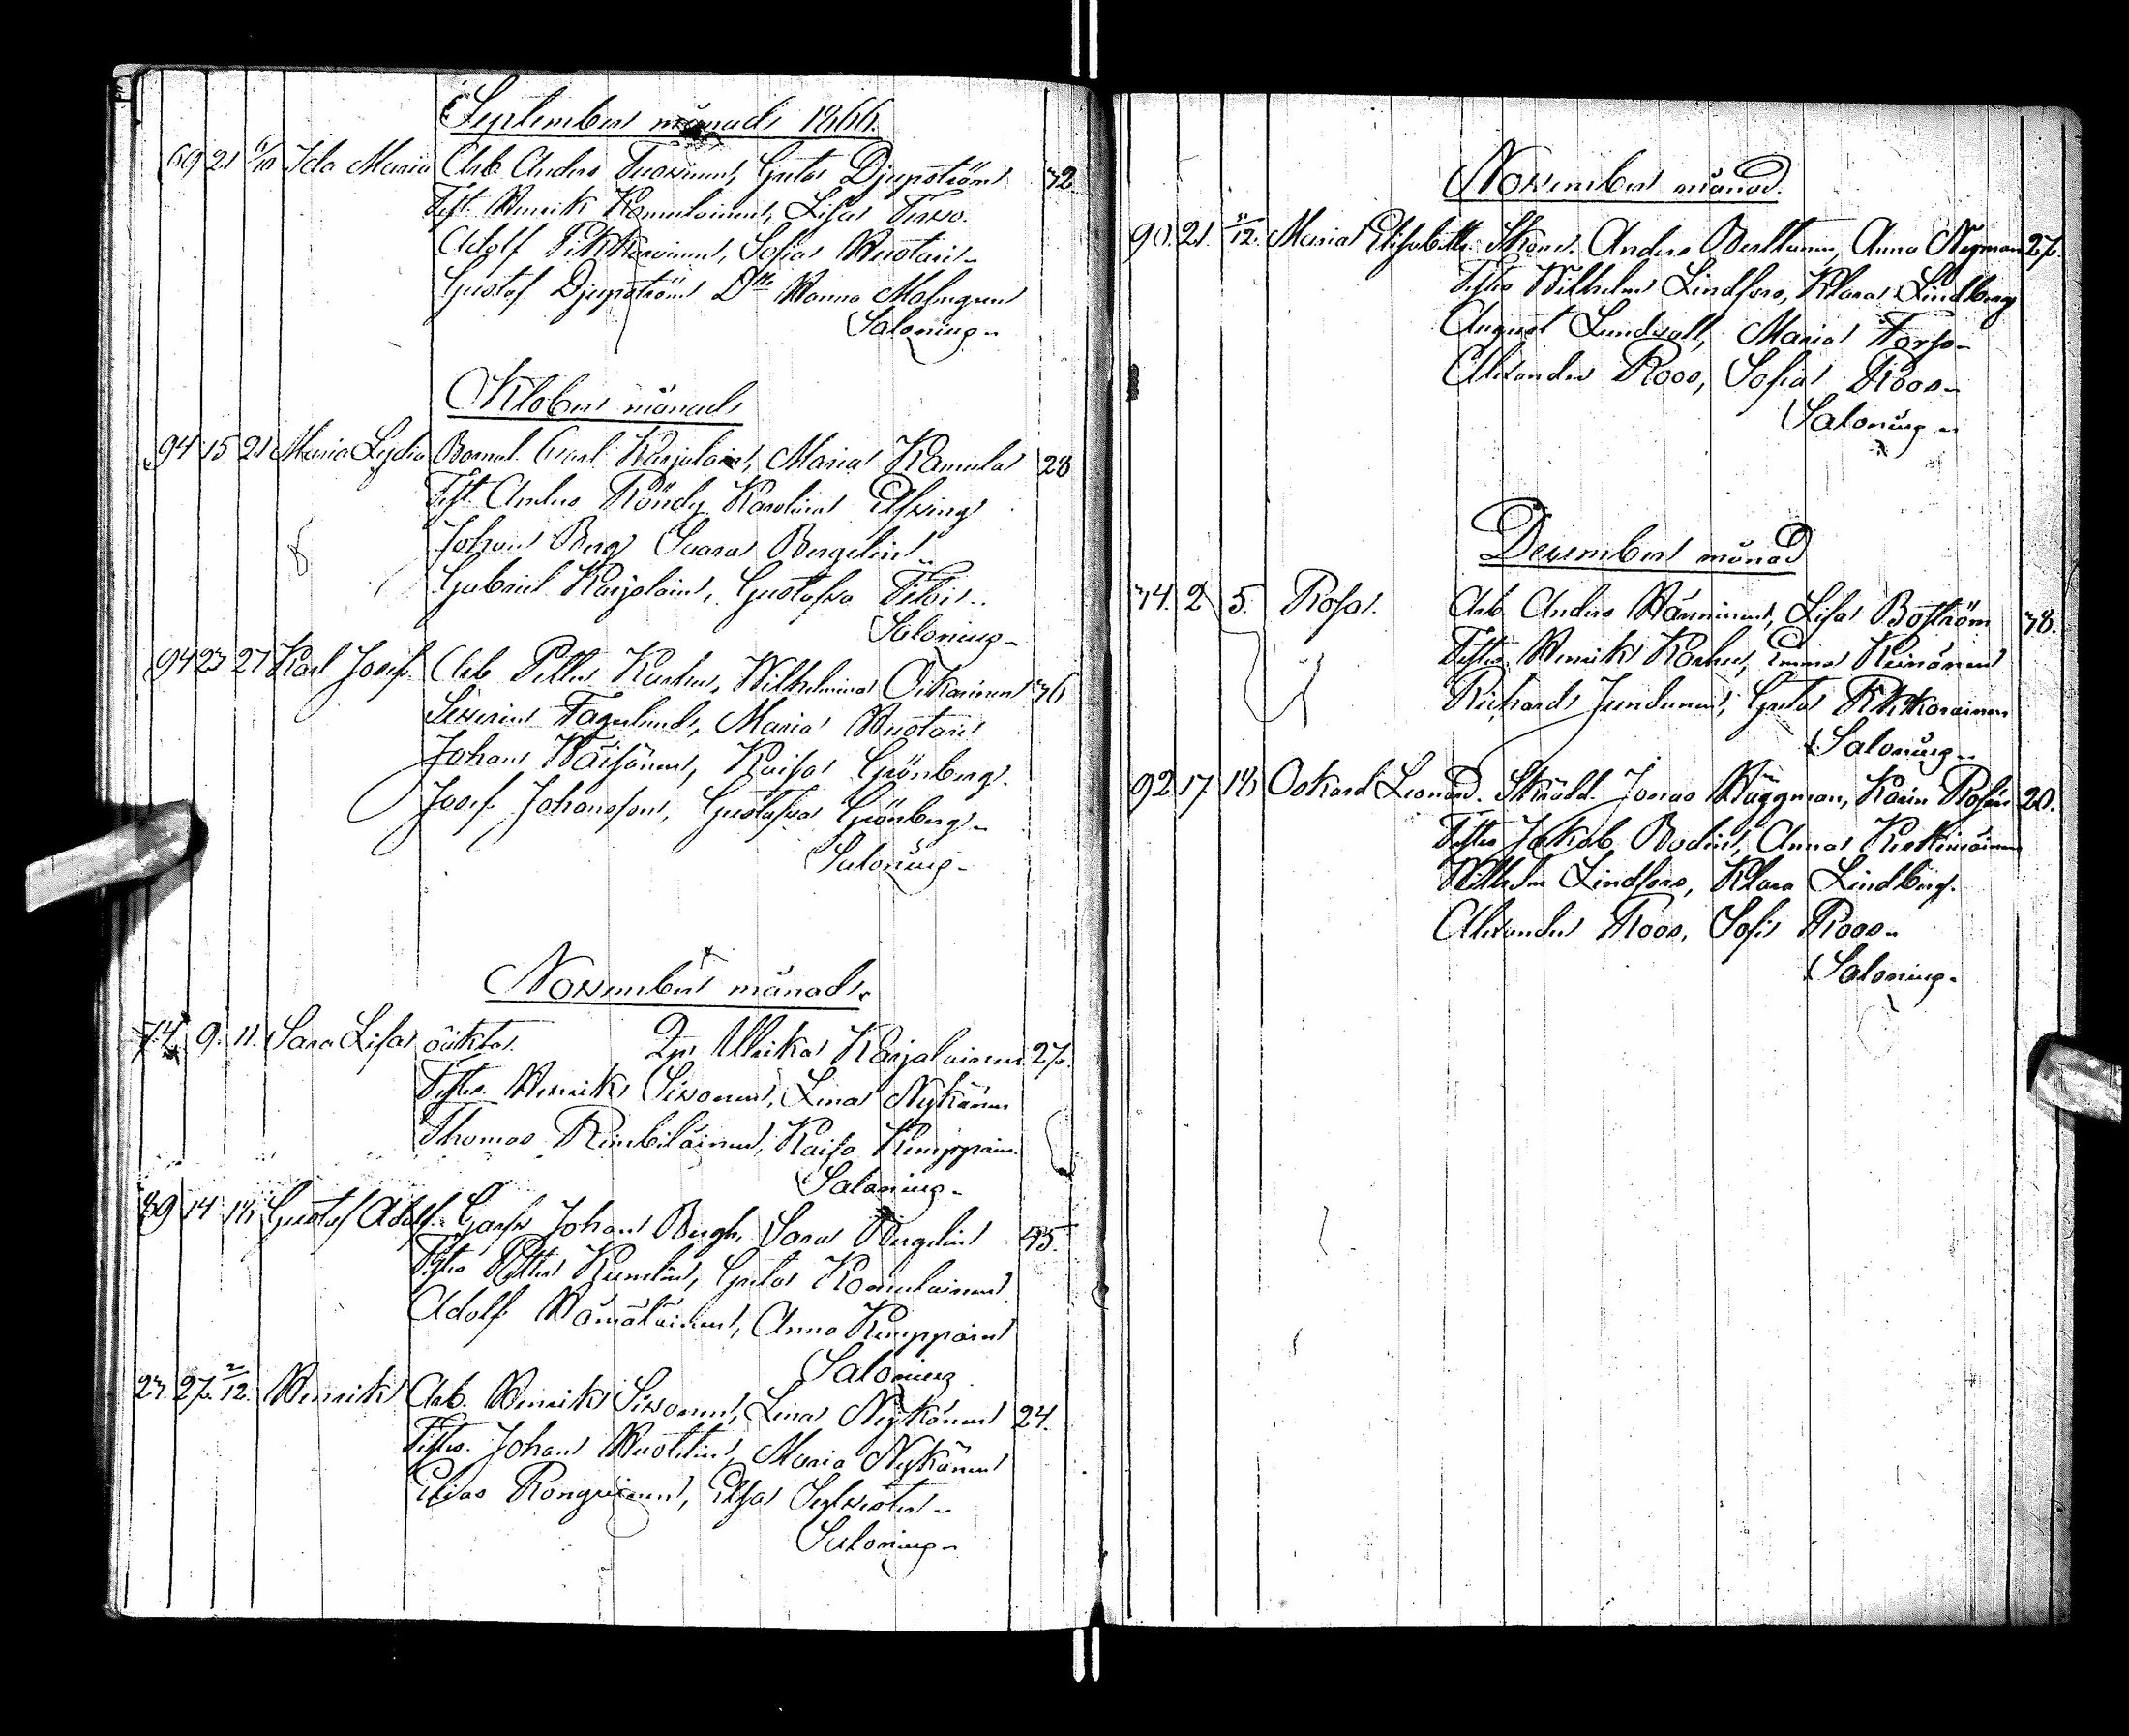 September månad 1866.
69 21 6/10 Ida Maria Arb. Anders Tuovinen, Greta Djupström 32
Test. Henrik Komulainen, Lisa Tervo.
Adolf Pikkarainen, Sofia Huotari
Gustaf Djupström Dtr Hanna Malmgren
Saloning
Oktober månad
94 15 21 Maria Lydia Carl Karjalain, Maria Kamula 28
Test. Anders Röndy Karolina Elfving
Johan Berg Saara Bergelin
Gabriel Karjalain, Gustafva
Saloning
94 23 27 Karl Josef Arb Petter Karhu, Wilhelmina Oikarinen 36
Severin Fagerlund, Maria Huotari
Johan Wäisänen, Kaisa Grönberg.
Josef Johansson, Gustafva Grönberg
Saloning
November månad.
74 9. 11. Sara Lisa oäkta. Ulrika Karjalainen 27.
Testes. Henrik Sivonen, Lena Nykänen
Thomas Rimbiläinen, Kaisa Kemppain.
Saloning
89 14 18 Gustaf Adolf. Garfv Johan Bergh, Sara Bergelin 35.
Testes Petter Kumlin, Greta Komulainen
Adolf Hämäläinen, Anna Kemppain
Saloning
23. 27. 2/12. Henrik Arb. Henrik Sivonen, Lena Nykänen 24.
Testes. Johan Huotelin, Maria Nykänen
Elias Rongainen, Elsa Sylvester
Saloning
November månad.
90. 21. 2/12. Maria Elisabeth. Skom. Anders Berttunen, Anna Nyman 27.
Testes Wilhelm Lindfors, Klara Lindberg
August Lundvall, Maria Torfo
Alexander Roos, Sofia Roos
Saloning
December månad
74. 2 5. Rosa. Arb Anders Hänninen, Lisa Boström 38.
Testes. Henrik Karhu, Emma Keinänen
Richard Jundunen, Greta Pikkarainen
Saloning
92 17. 18 Oskar Leonard. Skrädd. Jonas Häggman, Karin Rosén 20.
Testes Jakob Bodin, Anna
Wilhelm Lindfors, Klara Lindberg.
Alexander Roos, Sofia Roos
Saloning